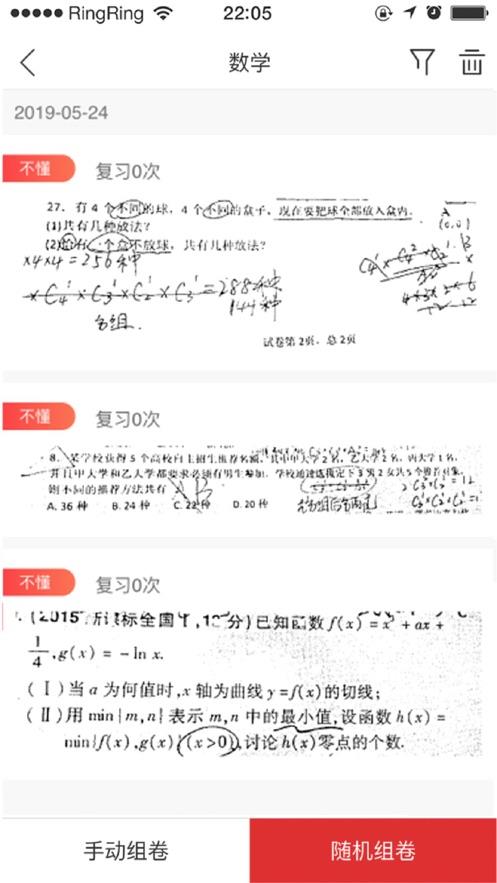 RingRing 22:05
数学
2019-05-24
不懂 复习0次
27. 有4个不同的球, 4个不同的盒子, 现在要把球全部放入盒内.
(1)共有几种放法?
(2)恰有一个盒不放球, 共有几种放法?
×4×4=256种
×C₄¹×C₃¹×C₂¹×C₃¹=288种
144种
分组.
试卷第2页, 总2页
不懂 复习0次
8. 某学校获得5个高校自主招生推荐名额, 其中甲大学2名, 乙大学2名, 丙大学1名,
并且甲大学和乙大学都要求必须有男生参加, 学校通过选拔定下3男2女共5个推荐对象,
则不同的推荐方法共有
A. 36种 B. 24种 C. 22种 D. 20种
不懂 复习0次
(2015·新课标全国Ⅰ,12分)已知函数f(x)=x³+ax+
1/4,g(x)=-ln x.
(Ⅰ)当a为何值时,x轴为曲线y=f(x)的切线;
(Ⅱ)用min{m,n}表示m,n中的最小值,设函数h(x)=
min{f(x),g(x)}(x>0),讨论h(x)零点的个数.
手动组卷 随机组卷